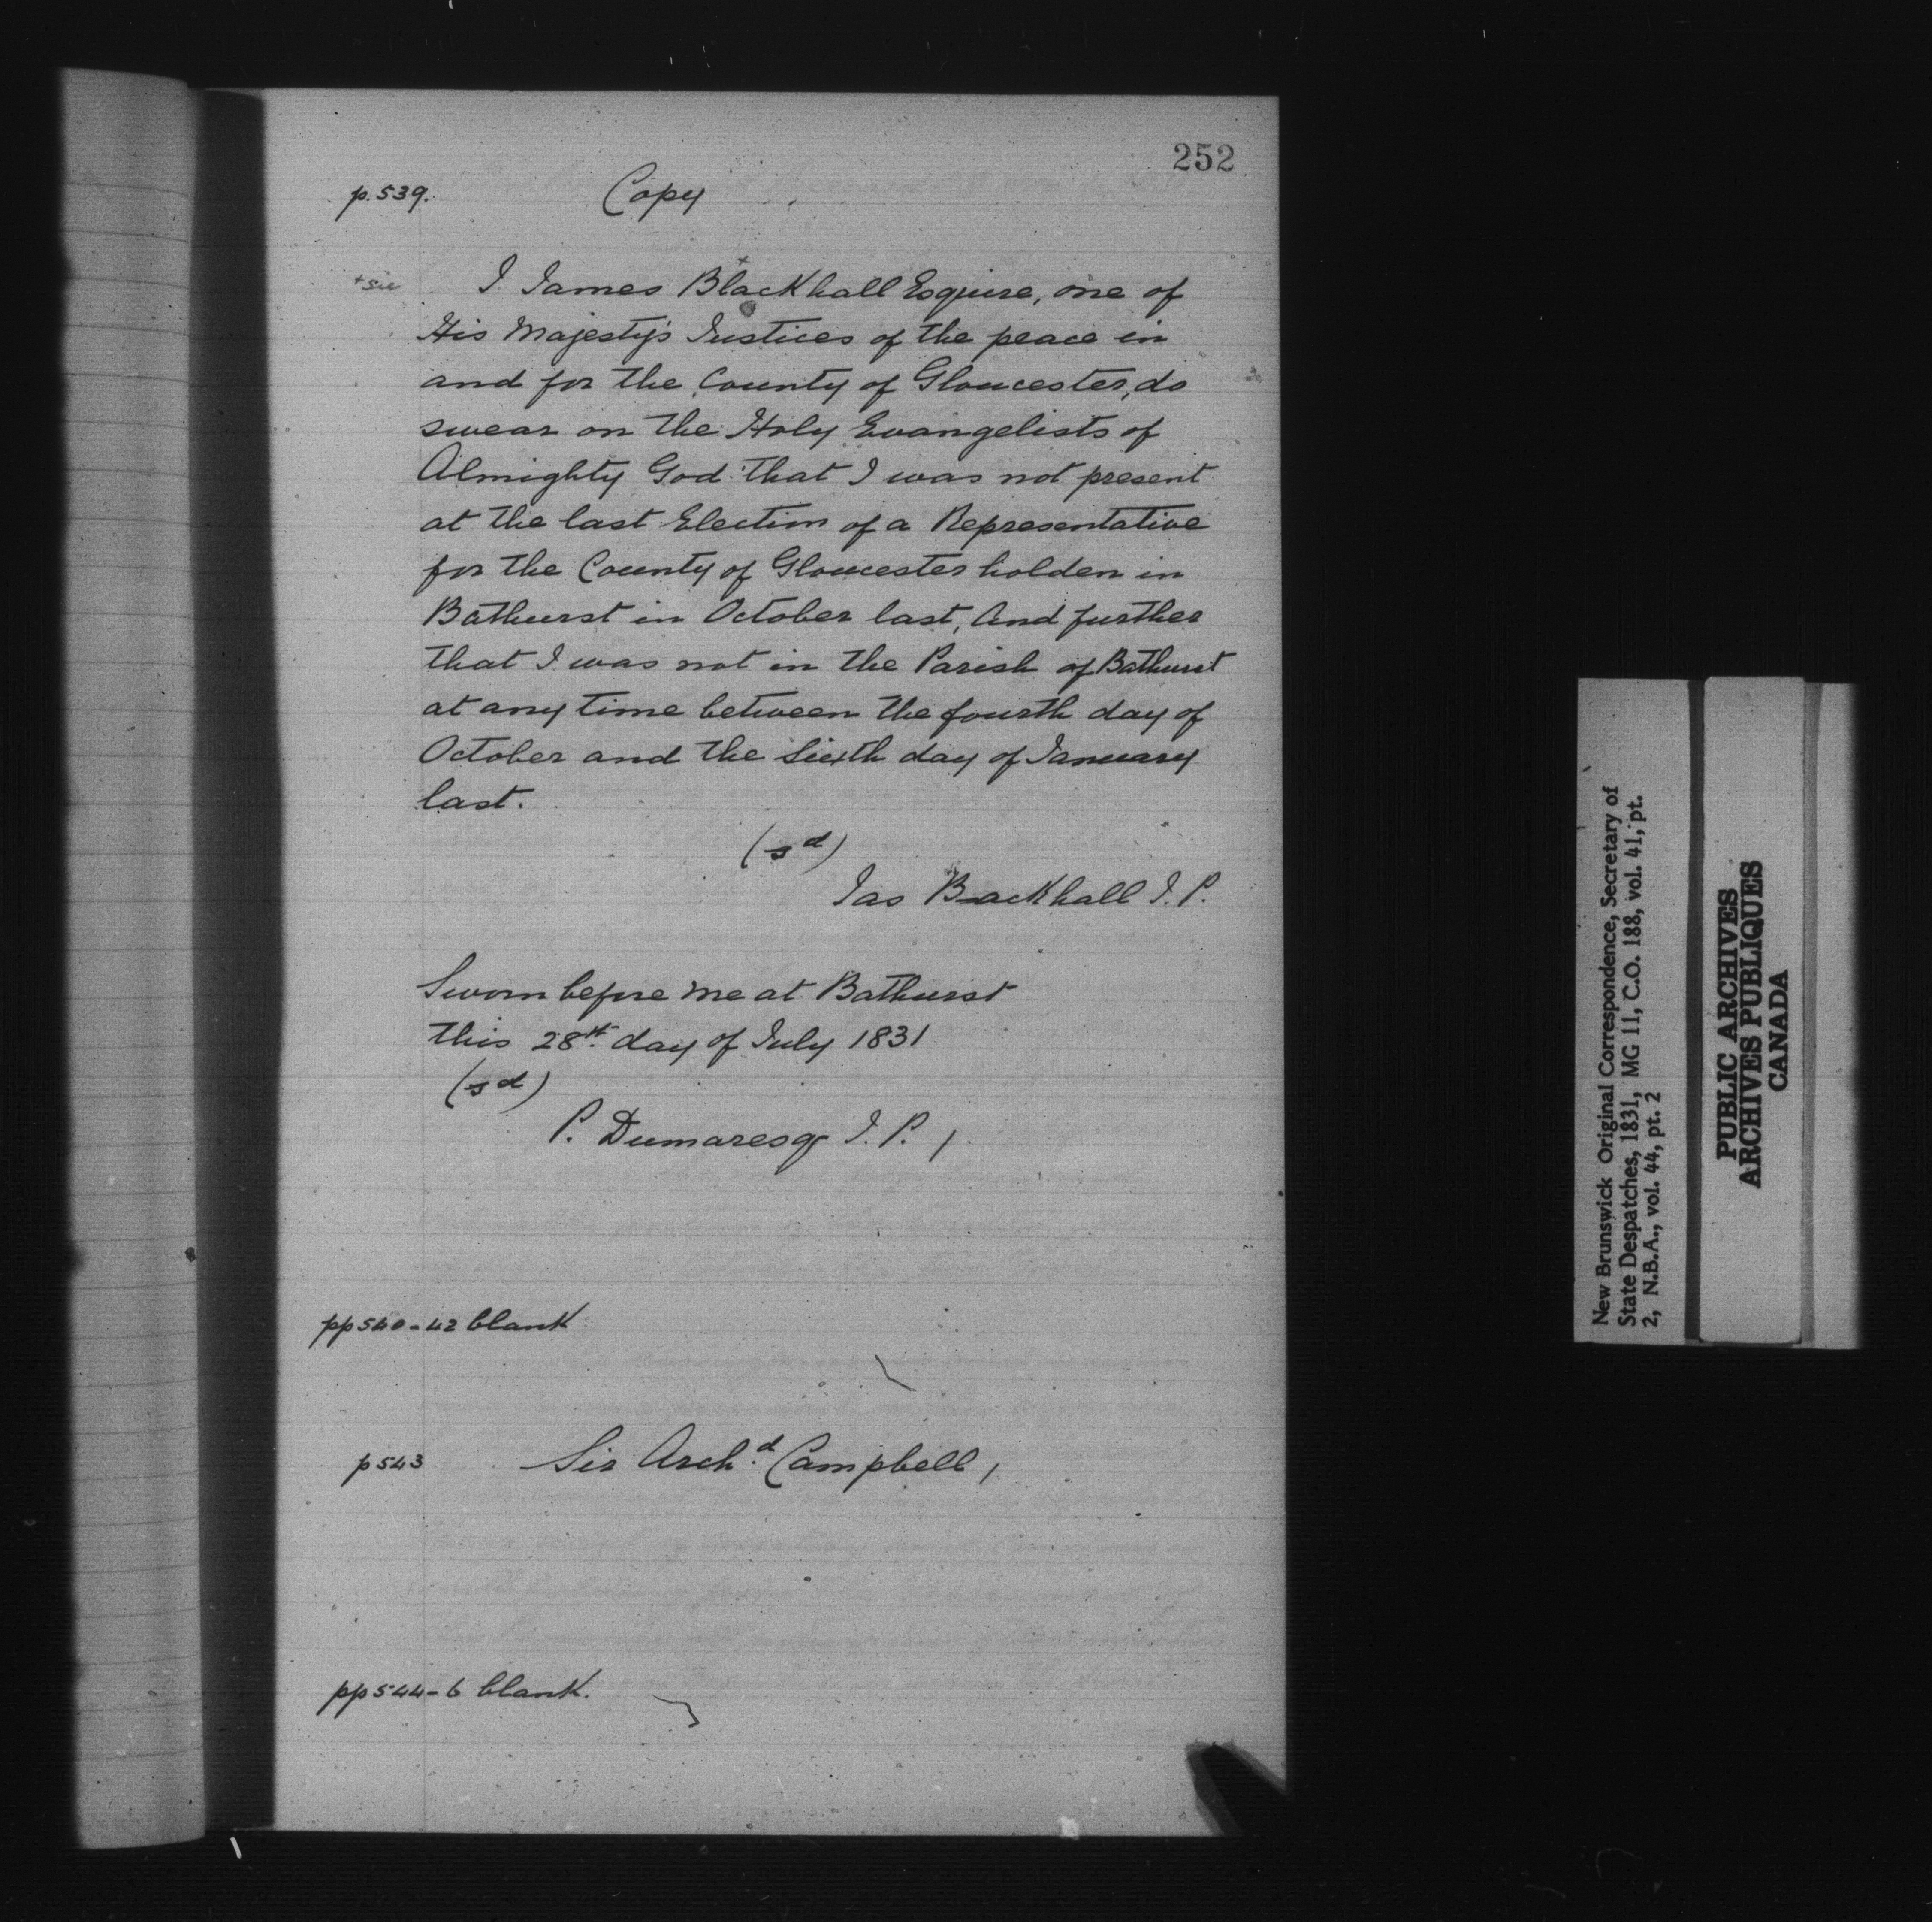 252
p. 539.
Copy
+ sic
I James Blackhall Esquire, one of
His Majesty's Justices of the peace in
and for the County of Gloucester, do
swear on the Holy Evangelists of
Almighty God that I was not present
at the last Election of a Representative
for the County of Gloucester holden in
Bathurst in October last, And further
that I was not in the Parish of Bathurst
at any time between the fourth day of
October and the Sixth day of January
last.
(sd)
Jas Backhall J. P.
Sworn before me at Bathurst
this 28th day of July 1831
(sd)
P. Dumaresq J. P. /
pp 540-42 blank
p 543
Sir Archd. Campbell /
pp 544-6 blank.
New Brunswick Original Correspondence, Secretary of
State Despatches, 1831, MG 11, C.O. 188, vol. 41, pt.
2, N.B.A., vol. 44, pt. 2
PUBLIC ARCHIVES
ARCHIVES PUBLIQUES
CANADA